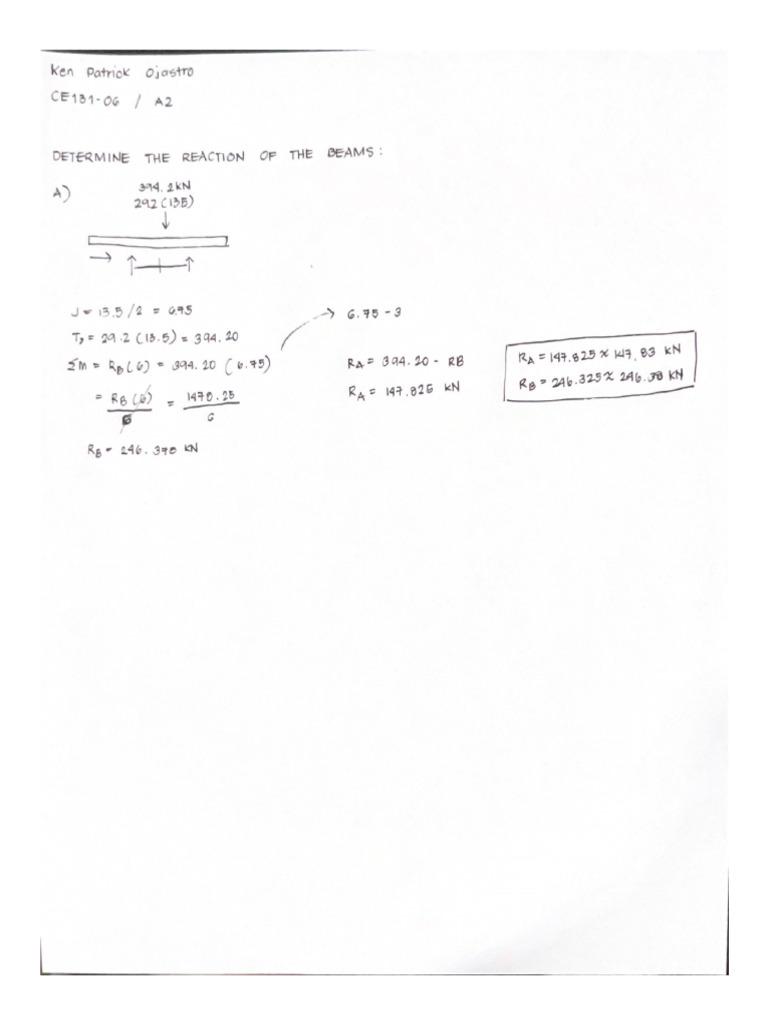 Ken Patrick Ojastro
CE131-06 / A2
DETERMINE THE REACTION OF THE BEAMS:
A)
394.2kN
292(135)
J = 13.5/2 = 6.75
= 29.2 (13.5) = 394.20
ΣM = RB(6) = 394.20 (6.75)
= RB(6) = 1478.25
6 6
RB = 246.370 kN
→ 6.75 - 3
RA = 394.20 - RB
RA = 147.825 kN
RA = 147.825 ≈ 147.83 kN
RB = 246.325 ≈ 246.38 kN